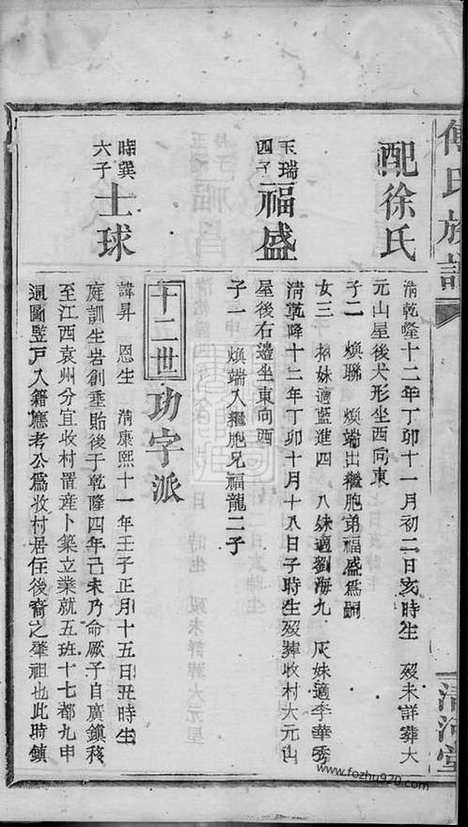 傅氏族譜
清河堂
配徐氏
清乾隆十二年丁卯十一月初二日亥時生 歿未詳葬大
元山屋後犬形坐西向東
子二 煥聯 煥端出繼胞弟福盛爲嗣
女三 格妹適藍進四 八妹適劉海九 灰妹適李華秀
玉瑞
四子
福盛
清乾隆十二年丁卯十月十八日子時生歿葬收村大元山
屋後右邊坐東向西
子一 煥端入繼胞兄福龍二子
十二世
功字派
時巽
六子
士球
諱昇 恩生 清康熙十一年壬子正月十五日丑時生
庭訓生岩創垂貽後于乾隆四年己未乃命厥子自廣鎮移
至江西袁州分宜收村置産卜築立業就五班十七都九甲
頂圖竪戸入籍應考公爲收村居住後裔之肇祖也此時鎮
www.fozhu920.com